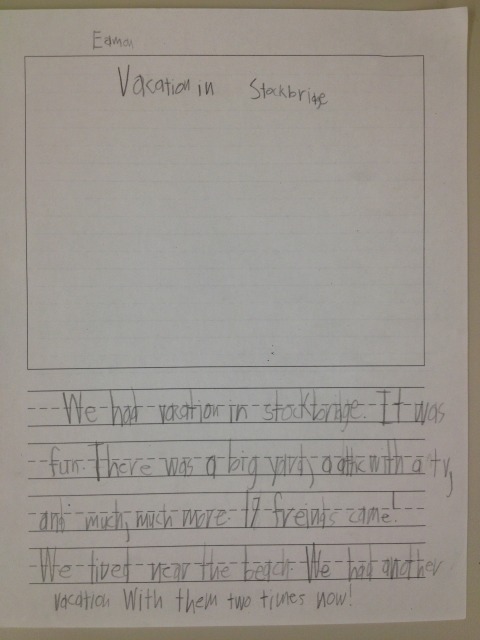 Edmon
Vacation in Stockbridge
We had vacation in stockbridge. It was
fun. There was a big yard, a attic with a tv,
and much, much more. 17 freinds came!
We lived near the beach. We had another
vacation With them two times now!